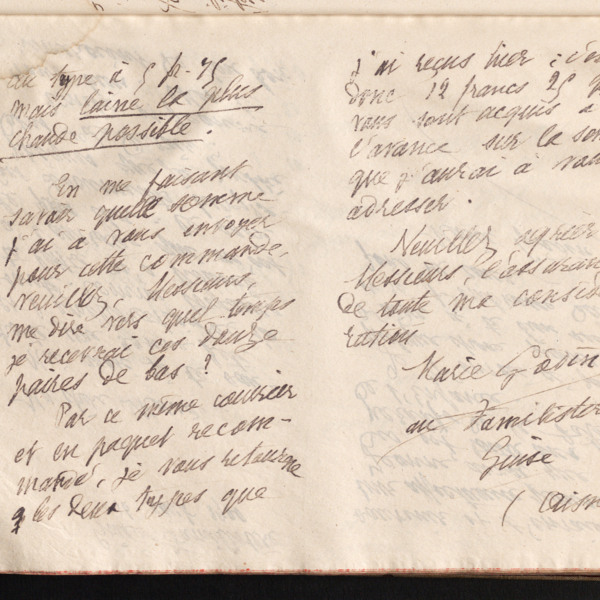 au type à 5 fr. 75
mais laine la plus
chaude possible.
En me faisant
savoir quelle somme
j'ai à vous envoyer
pour cette commande,
veuillez, Messieurs,
me dire vers quel temps
je recevrai ces douze
paires de bas ?
Par ce même courrier
et en paquet recom-
mandé, je vous retourne
les deux types que
j'ai reçus hier ; c'es
donc 12 francs 25 q
vous sont acquis à
l'avance sur la som
que j'aurai à vou
adresser.
Veuillez agréer
Messieurs, l'assuran
de toute ma consid
ration
Marie Godin
au Familister
Guise
(Aisn